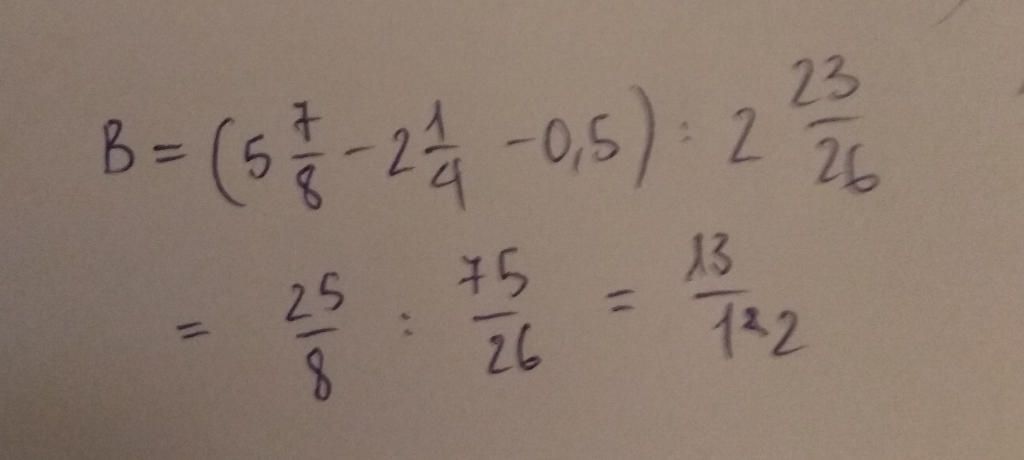 B = (5 7/8 - 2 1/4 - 0,5) : 2 23/26
= 25/8 : 75/26 = 13/12